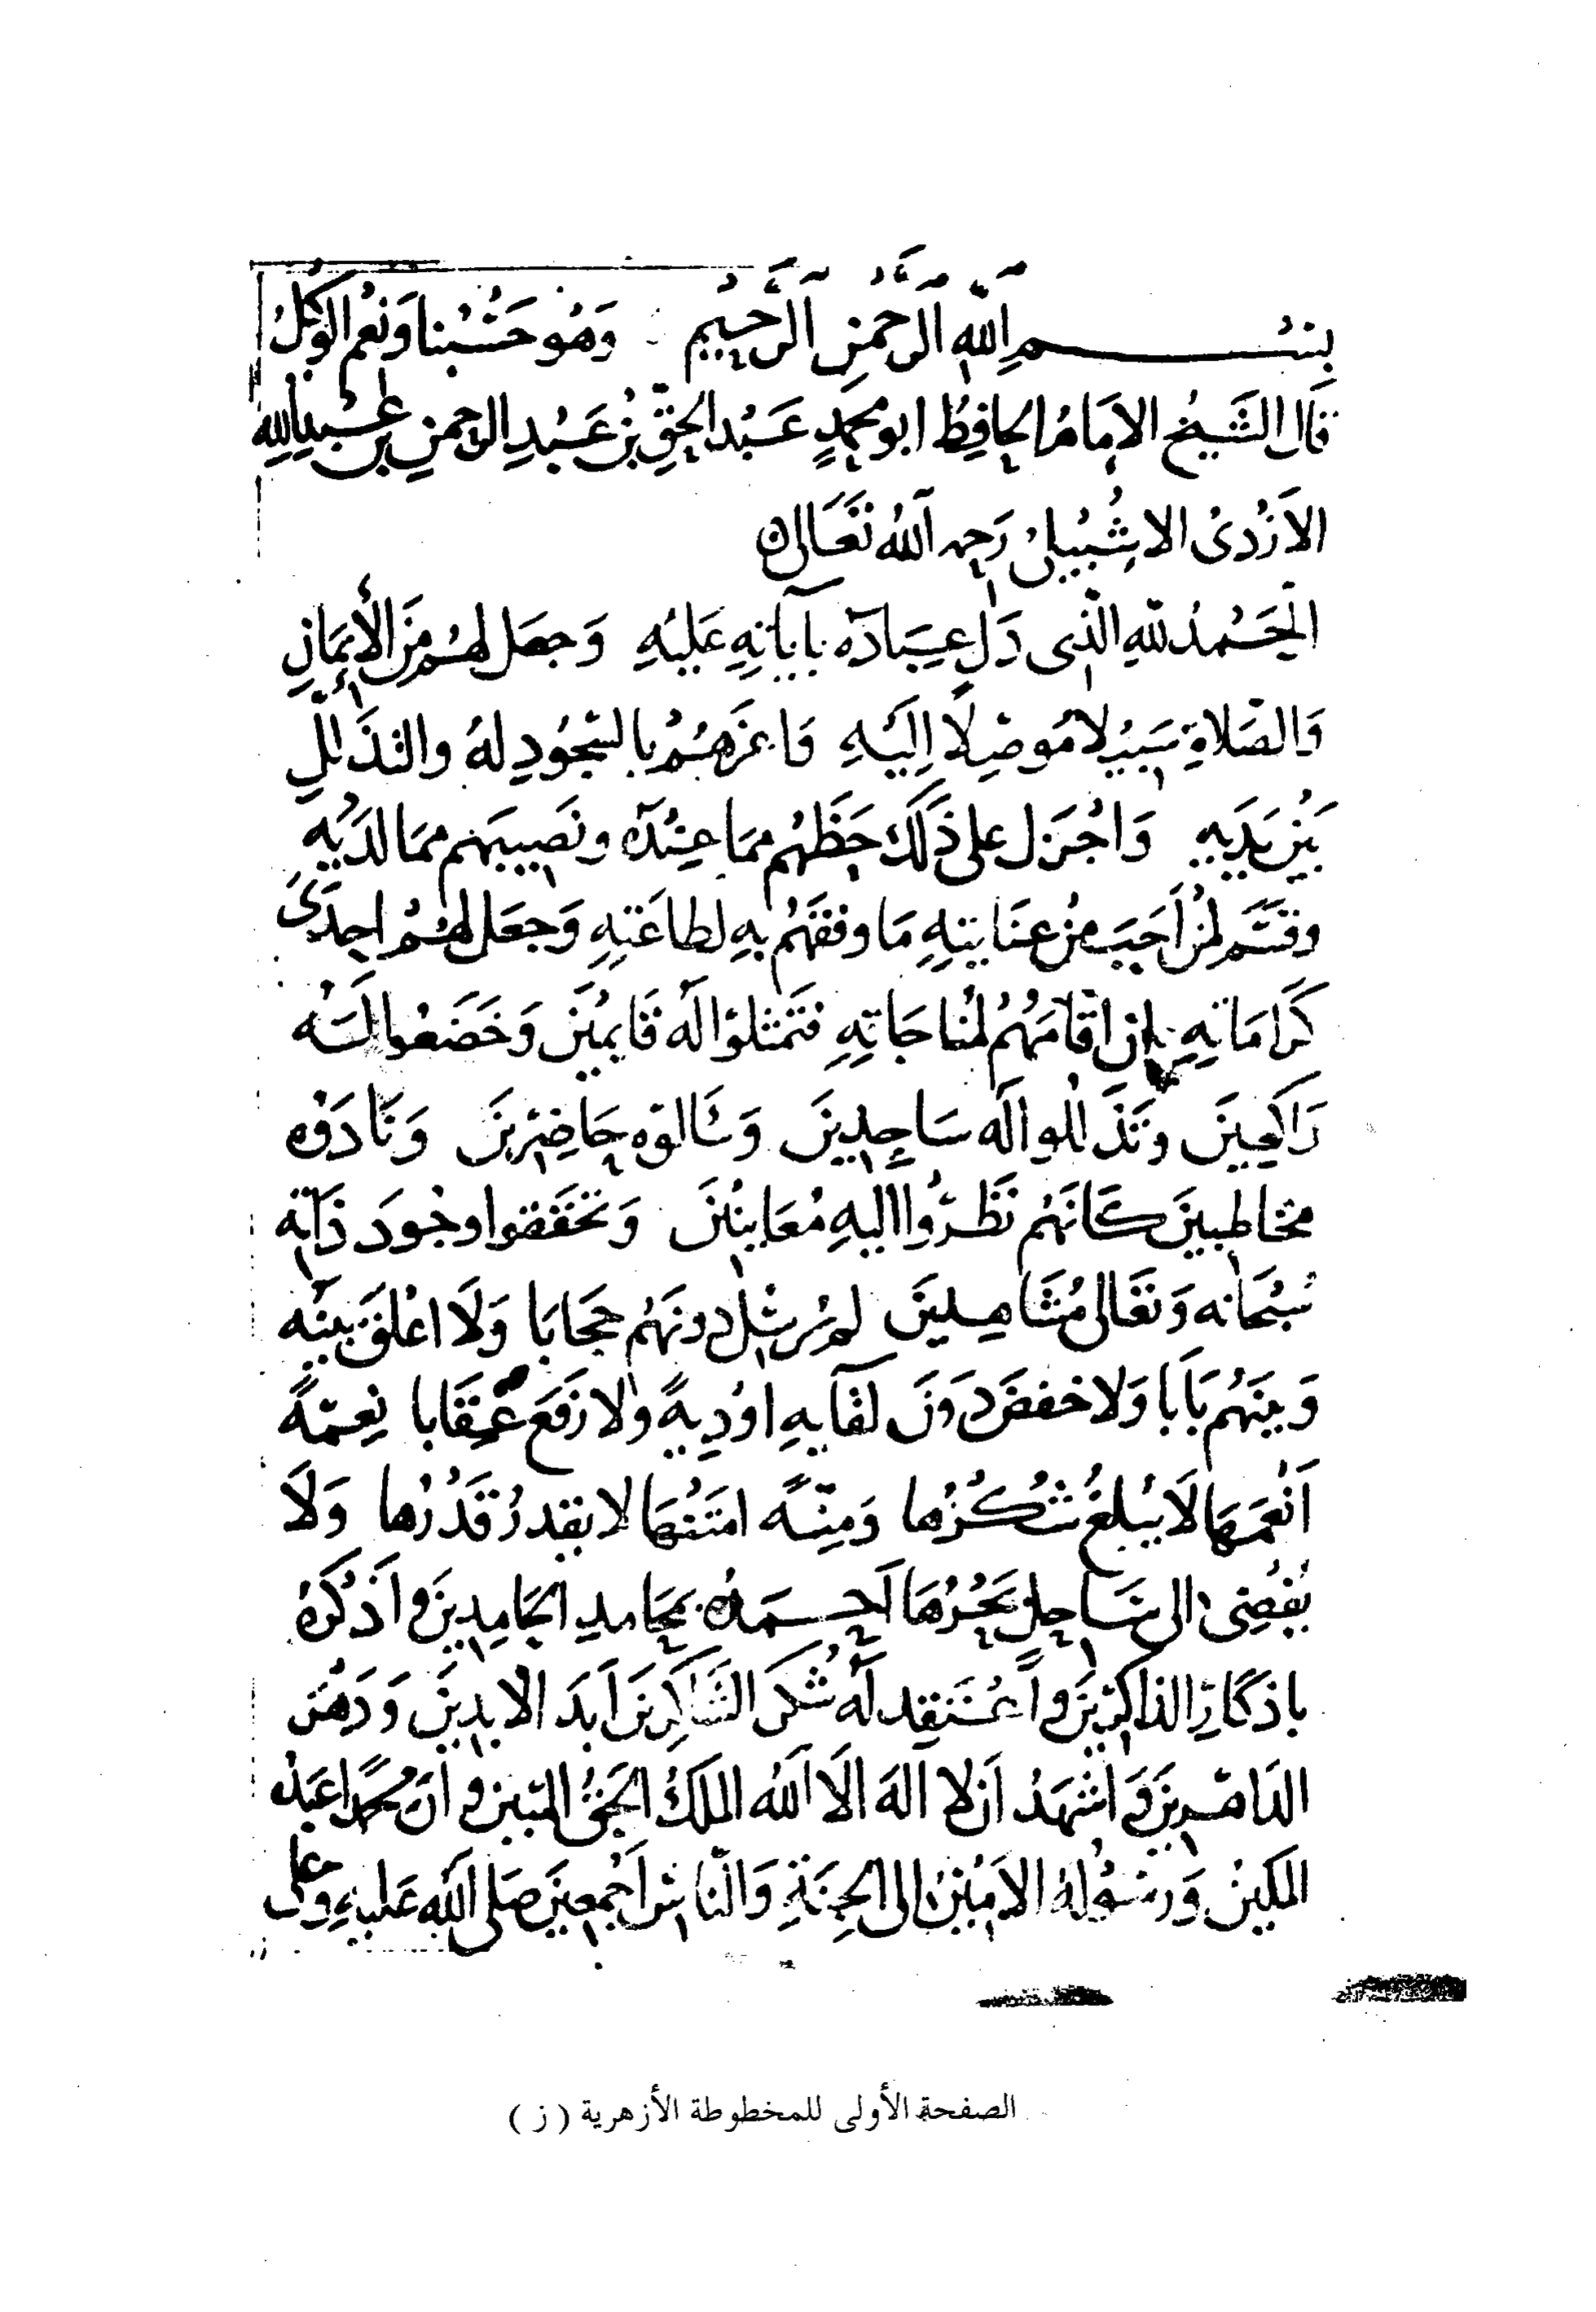 بسم الله الرحمن الرحيم وهو حسبنا ونعم الوكيل
قال الشيخ الإمام الحافظ ابو محمد عبد الحق بن عبد الرحمن بن عبد الله
الازدي الاشبيلي رحمه الله تعالى
الحمد لله الذي دل عباده بآياته عليه وجعل لهم من الأيمان
والصلاة سبيلا موصلا إليه واعزهم بالسجود له والتذلل
بين يديه واجزل على ذلك حظهم مما عنده ونصيبهم مما لديه
وقسم لمن احب من عنايته ما وفقهم به لطاعته وجعل لهم احدى
كراماته ان اقامهم لمناجاته فتمثلوا له قايمين وخضعوا له
راكعين وتذللوا له ساجدين وسالوه حاضرين ونادوه
مخاطبين كانهم نظروا اليه معاينين وتحققوا وجود ذاته
سبحانه وتعالى مشاهدين لم يرسل دونهم حجابا ولا اغلق بينه
وبينهم بابا ولا خفض دون لقايه اودية ولا رفع عقابا نعمة
انعمها لا يبلغ شكرها ومنة امتنها لا يقدر قدرها ولا
يفضى الى ساحل بحرها احمده بمحامد الحامدين واذكره
باذكار الذاكرين واعتقد له شكر الشاكرين ابد الابدين ودهر
الداهرين واشهد ان لا اله الا الله الملك الحق المبين وان محمدا عبده
المكين ورسوله الامين الى الجنة والناس اجمعين صلى الله عليه وعلى
الصفحة الأولى للمخطوطة الأزهرية ( ز )